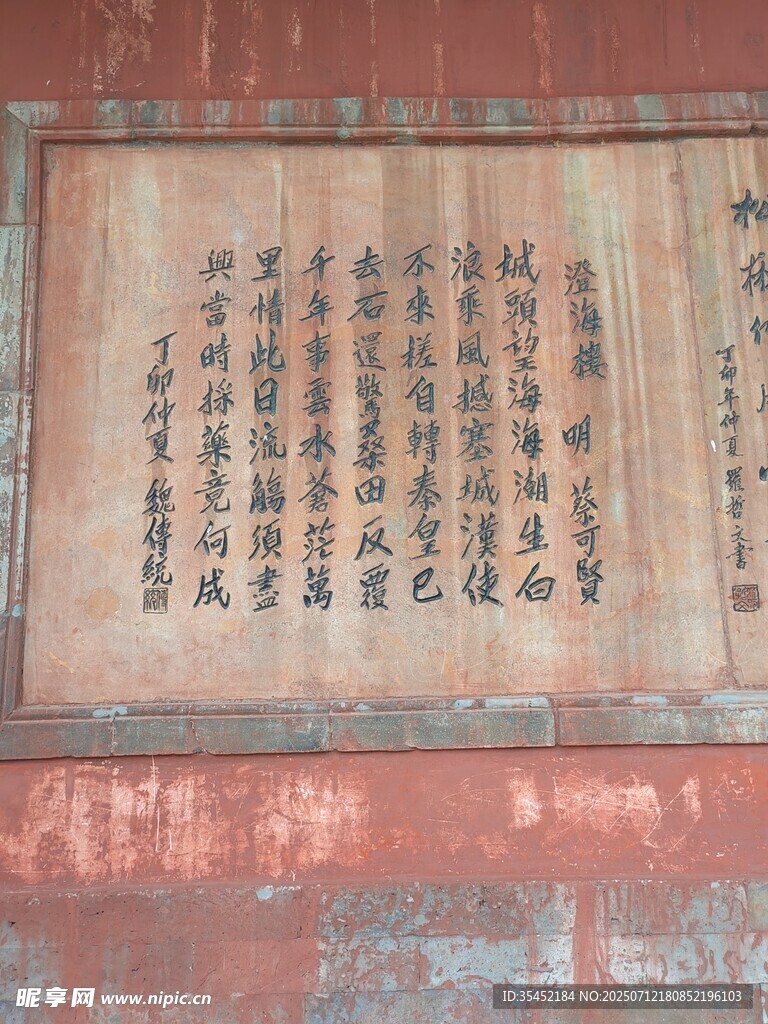 澄海樓 明 蔡可賢
城頭望海海潮生白
浪乘風撼塞城漢使
不來槎自轉秦皇已
去石還驚桑田反覆
千年事雲水蒼茫萬
里情此日流觴須盡
興當時採藥竟何成
丁卯仲夏 魏傳統
丁卯年仲夏 羅哲文書
昵享网 www.nipic.cn
ID:35452184 NO:20250712180852196103